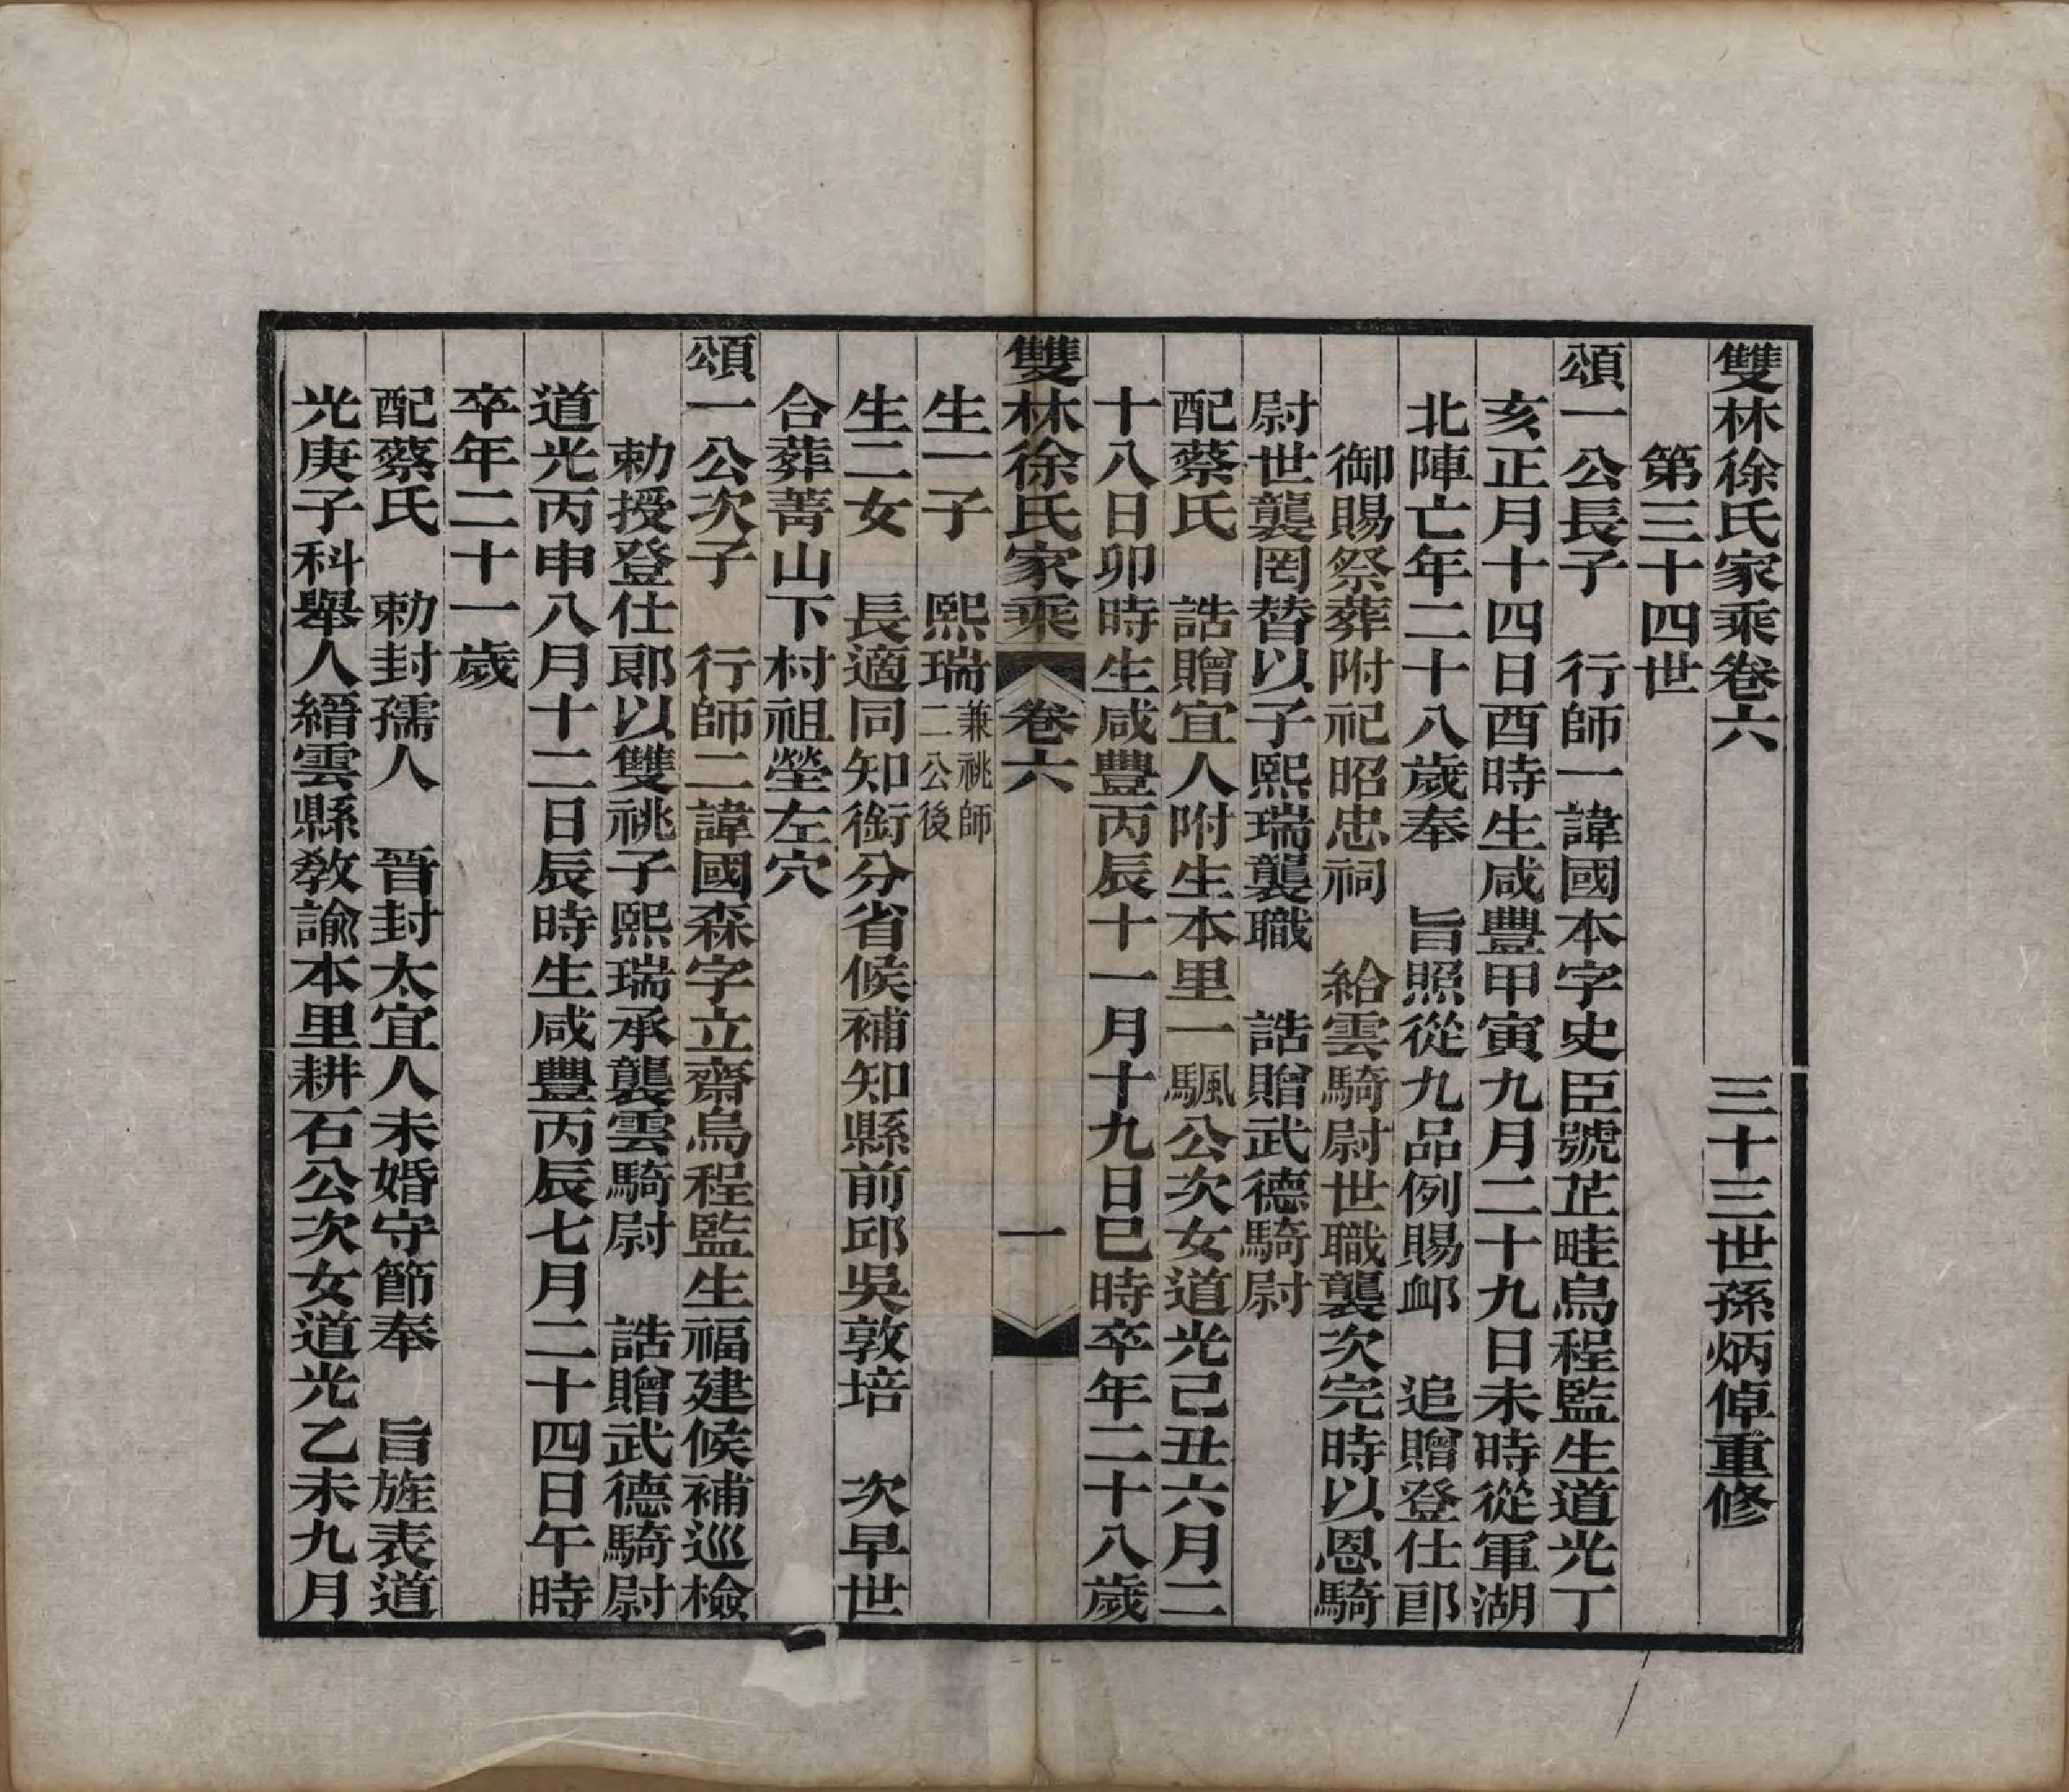 雙林徐氏家乘卷六　三十三世孫炳倬重修
第三十四世
頌一公長子　行師一諱國本字史臣號芷畦烏程監生道光丁
亥正月十四日酉時生咸豐甲寅九月二十九日未時從軍湖
北陣亡年二十八歲奉　旨照從九品例賜卹　追贈登仕郎
御賜祭葬附祀昭忠祠　給雲騎尉世職襲次完時以恩騎
尉世襲罔替以子熙瑞襲職　誥贈武德騎尉
配蔡氏　誥贈宜人附生本里一颿公次女道光己丑六月二
十八日卯時生咸豐丙辰十一月十九日巳時卒年二十八歲
雙林徐氏家乘　卷六　一
生一子　熙瑞兼祧師二公後
生二女　長適同知銜分省候補知縣前邱吳敦培　次早世
合葬菁山下村祖塋左穴
頌一公次子　行師二諱國森字立齋烏程監生福建候補巡檢
勅授登仕郎以雙祧子熙瑞承襲雲騎尉　誥贈武德騎尉
道光丙申八月十二日辰時生咸豐丙辰七月二十四日午時
卒年二十一歲
配蔡氏　勅封孺人　晉封太宜人未婚守節奉　旨旌表道
光庚子科舉人縉雲縣敎諭本里耕石公次女道光乙未九月